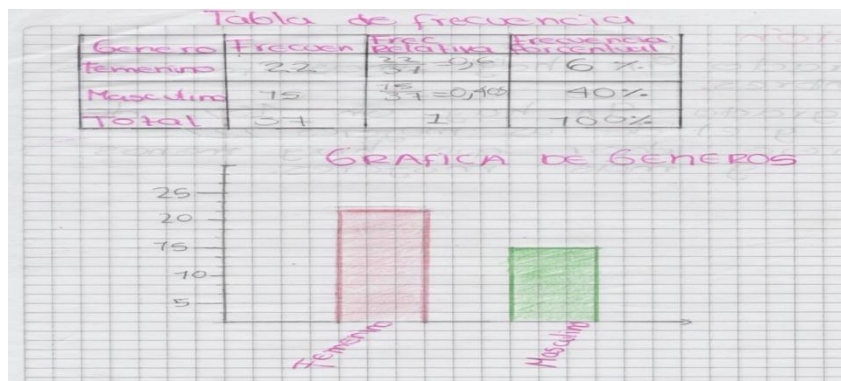 Tabla de frecuencia
Genero Frecuen Frec Relativa Frecuencia Porcentual
femenino 22 22/37 =0,6 6 %
Masculino 15 15/37 =0,405 40%
Total 37 1 100%
GRAFICA DE GENEROS
25
20
15
10
5
Femenino
Masculino